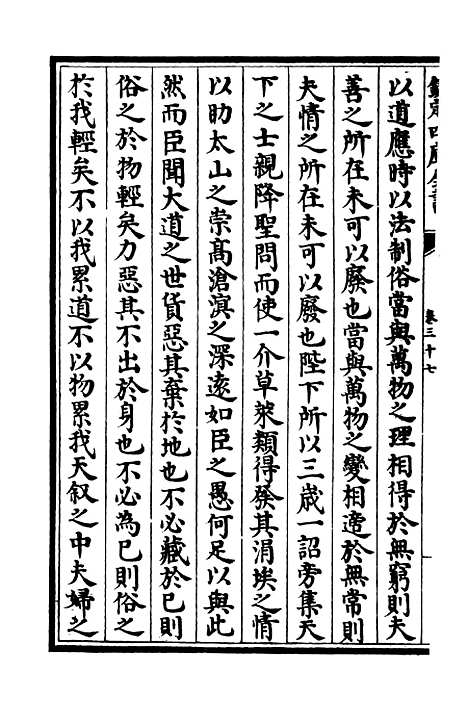 欽定四庫全書
卷三十七
以道應時以法制俗當與萬物之理相得於無窮則夫
善之所在未可以廢也當與萬物之變相適於無常則
夫情之所在未可以廢也陛下所以三歲一詔旁集天
下之士親降聖問而使一介草萊類得發其涓埃之情
以助太山之崇髙滄溟之深逺如臣之愚何足以與此
然而臣聞大道之世貨惡其棄於地也不必藏於已則
俗之於物輕矣力惡其不出於身也不必為已則俗之
於我輕矣不以我累道不以物累我天叙之中夫婦之